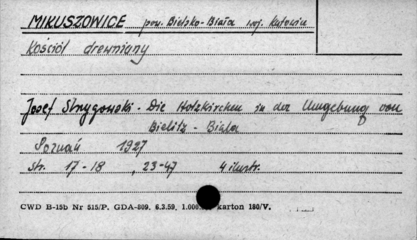 MIKUSZOWICE pow. Bielsko-Biała woj. Katowice
Kościół drewniany
Josef Strzygowski - Die Holzkirchen in der Umgebung von
Bielitz - Biala
Poznań 1927
str. 17-18 , 23-47 4 ilustr.
CWD B-15b Nr 515/P. GDA-809. 6.3.59. 1.000. karton 180/V.